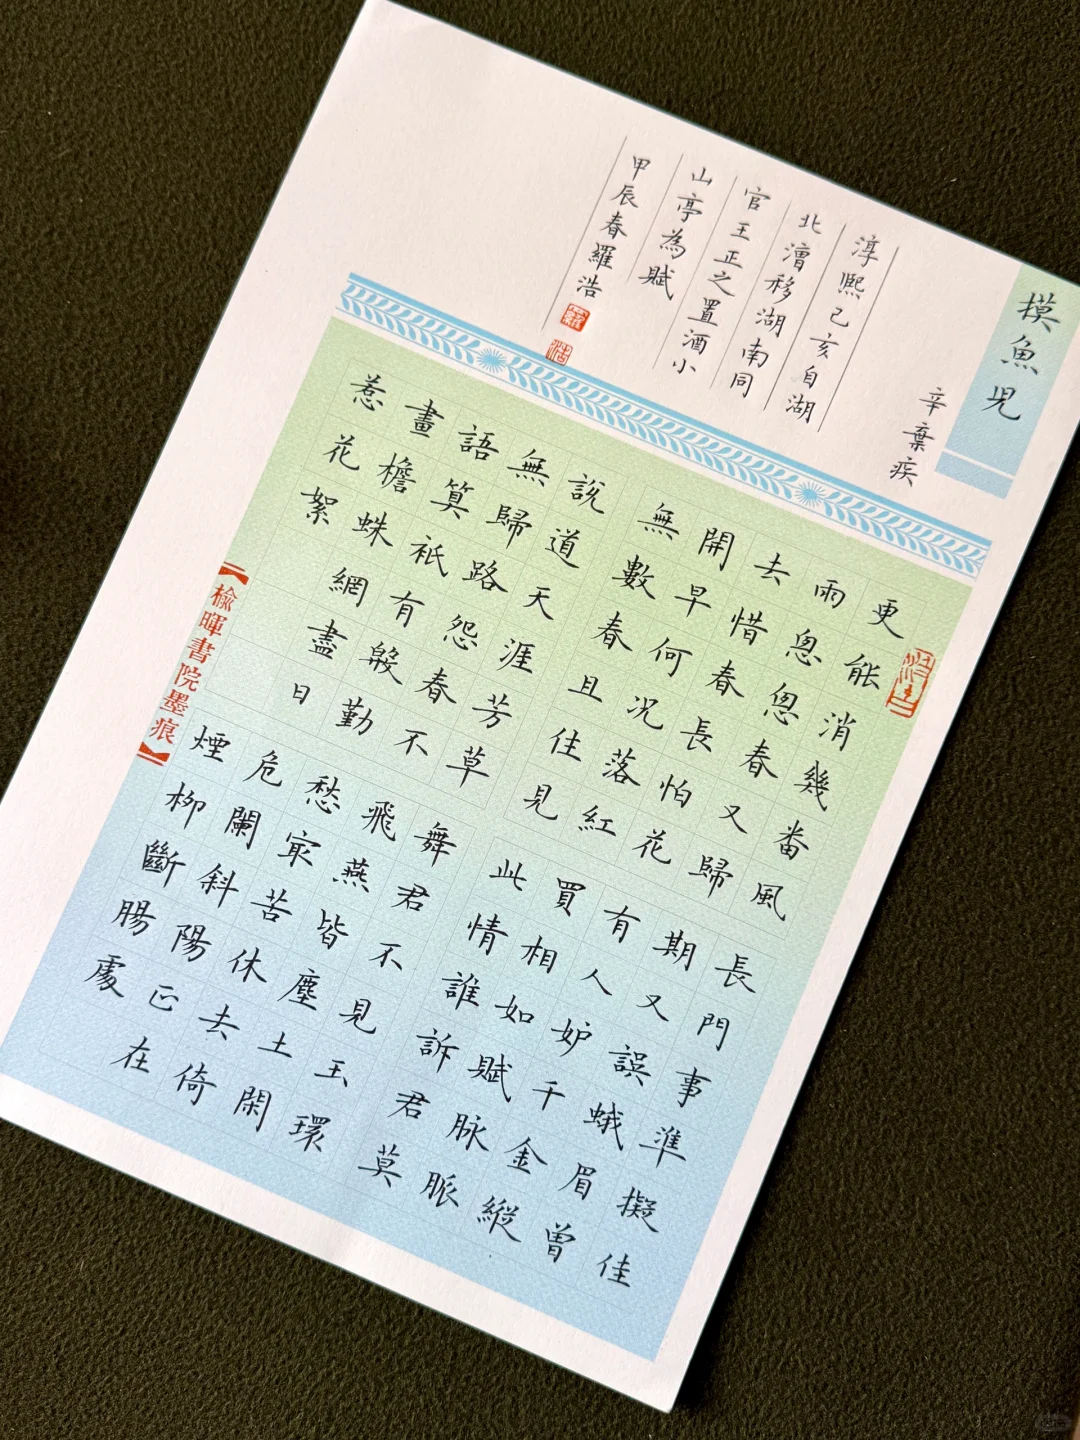 摸魚兒
辛棄疾
淳熙己亥自湖
北漕移湖南同
官王正之置酒小
山亭為賦
甲辰春羅浩
更能消幾番風
雨怱怱春又歸
去惜春長怕花
開早何況落紅
無數春且住見
說道天涯芳草
無歸路怨春不
語算衹有殷勤
畫檐蛛網盡日
惹花絮
長門事準擬佳
期又誤蛾眉曾
有人妒千金縱
買相如賦脉脈
此情誰訴君莫
舞君不見玉環
飛燕皆塵土閑
愁冣苦休去倚
危闌斜陽正在
煙柳斷腸處
【榆暉書院墨痕】